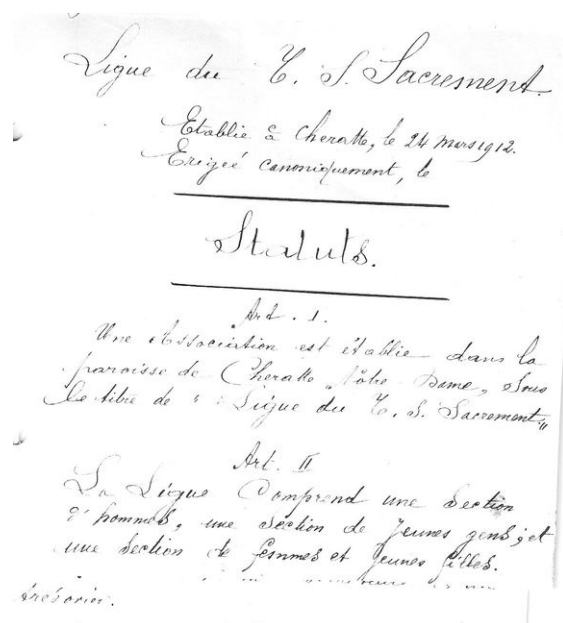 Ligue du T. S. Sacrement.
Etablie à Cheratte, le 24 mars 1912.
Erigée canoniquement, le
Statuts.
Art. I.
Une Association est établie dans la
paroisse de Cheratte Nôtre Dame, sous
le titre de "Ligue du T. S. Sacrement"
Art. II
La Ligue Comprend une Section
d'hommes, une Section de Jeunes gens, et
une Section de femmes et jeunes filles.
trésorier.